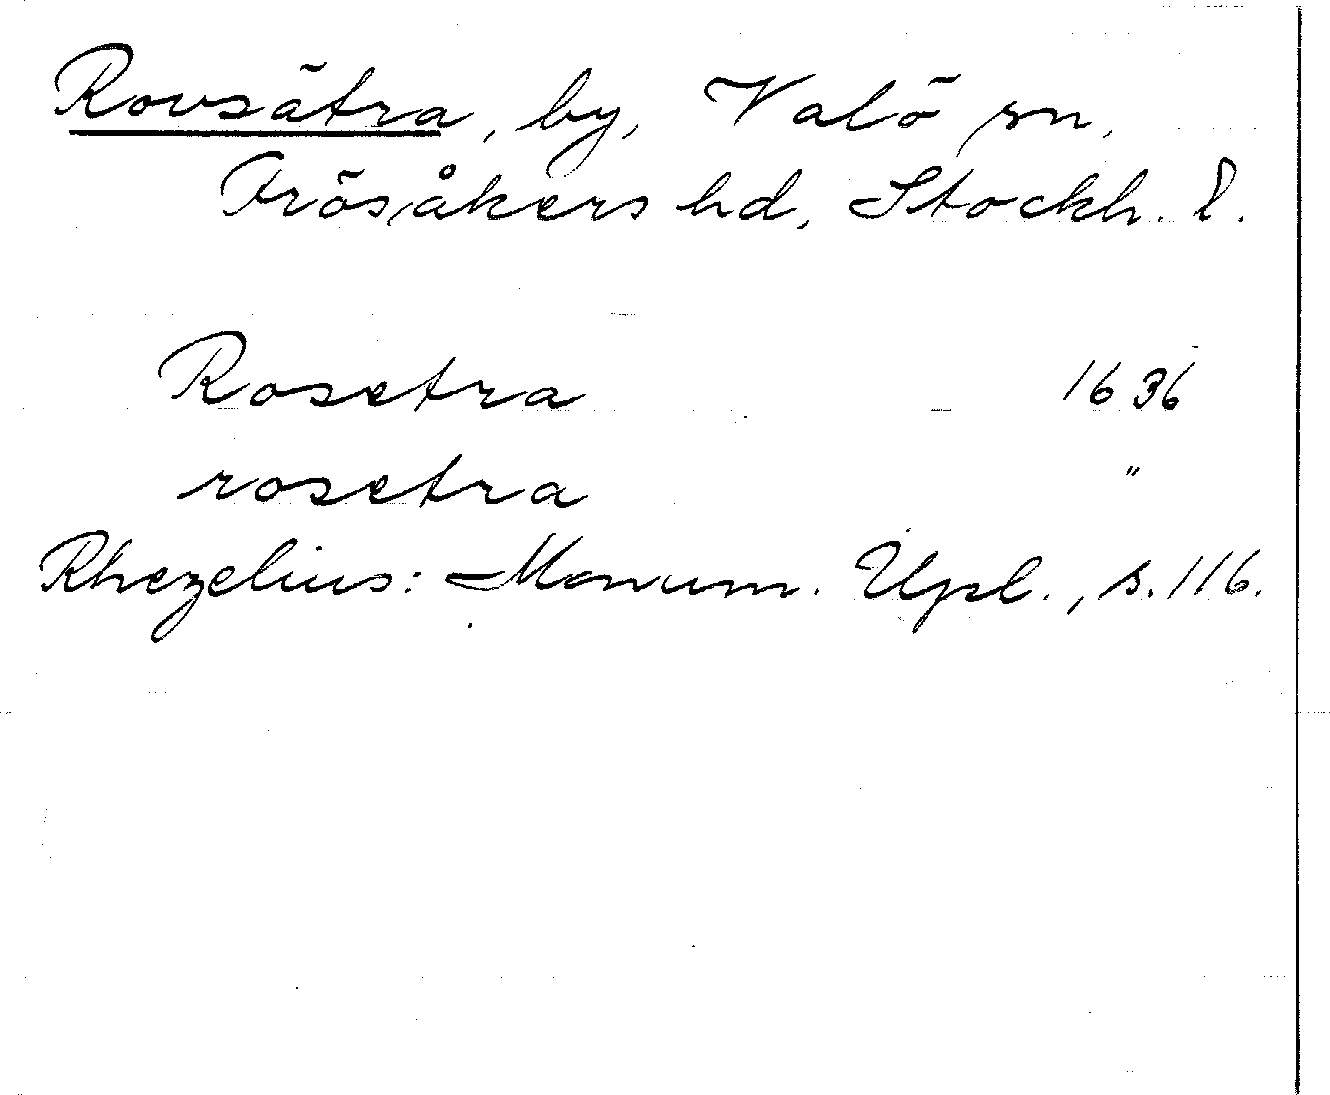 Rovsätra, by, Valö sn,
Frösåkers hd, Stockh. l.
Rosetra 1636
rosetra "
Rhezelius: Monum. Upl., s. 116.